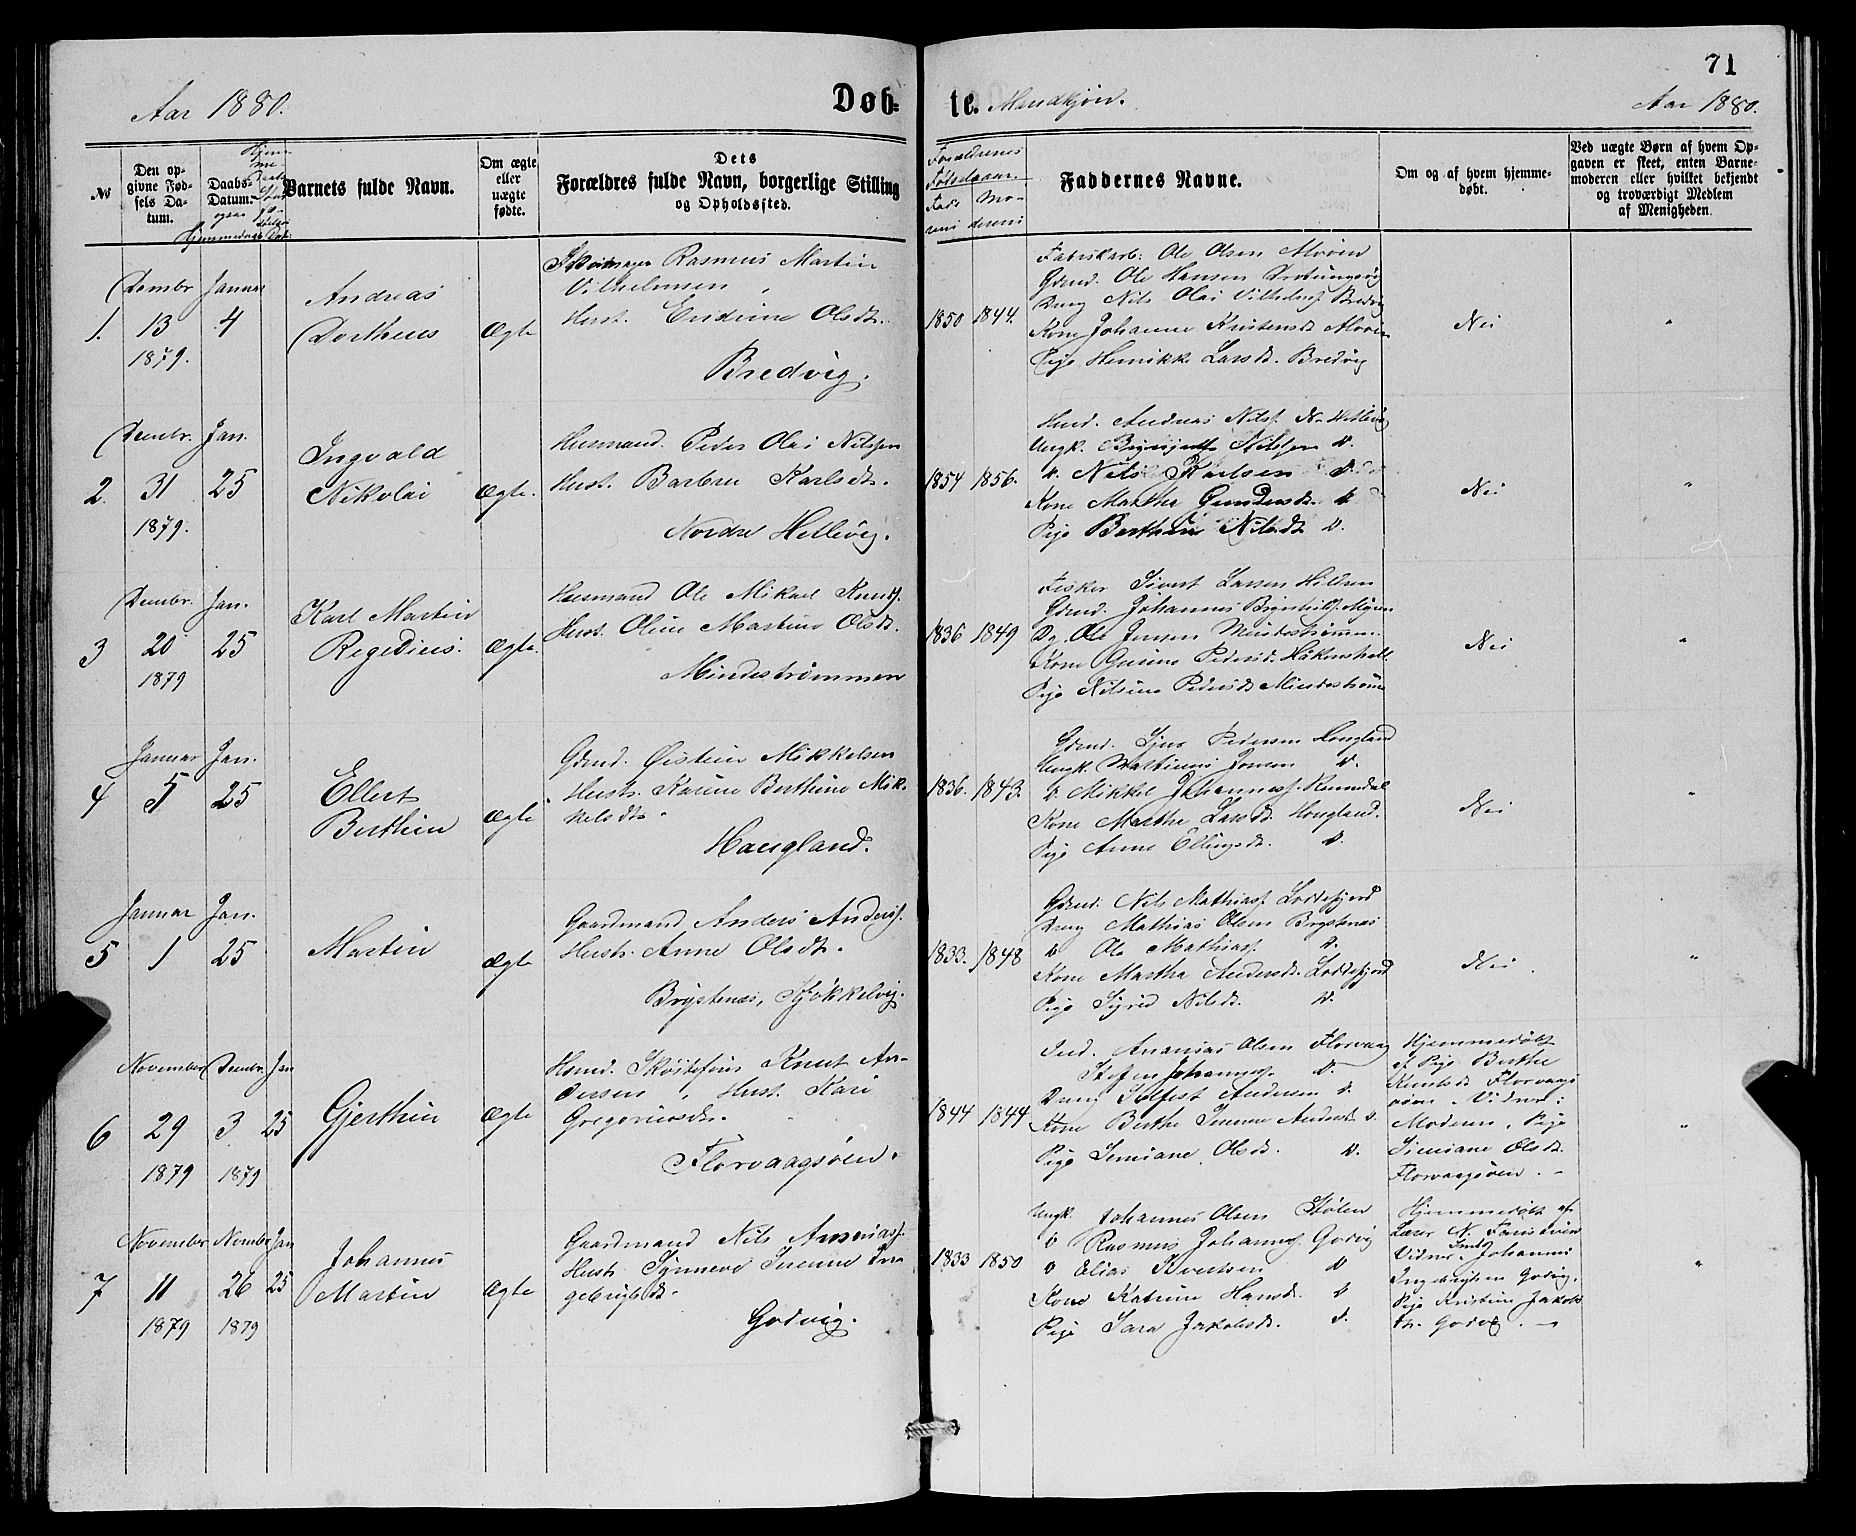 71
Aar 1880.
Døb-
te. Mandkjøn.
Aar 1880.
No
Den op-
givne Fød-
sels Da-
tum.
Daabs-
Datum.
Barnets fulde Navn.
Om ægte
eller
uægte
fødte.
Dets
Forældres fulde Navn, borgerlige Stilling
og Opholdssted.
Forældrenes
Fødselsaar.
Fade- Mo-
rens derens
Faddernes Navne.
Om og af hvem hjemme-
døbt.
Ved uægte Børn af hvem Op-
gaven er skeet, enten Barne-
moderen eller hvilket bekjendt
og troværdigt Medlem
af Menigheden.
1.
Decmbr
13
1879.
Januar
4
Andreas
Dortheus
Ægte
Rasmus Martin
Vilhelmsen,
Hust. Endrine Olsdtr.
Bredvig.
1850 1844.
Fabrikarb: Ole Olsen Alvøen
Gdmd. Ole Hansen
Dreng Nils Olai Vilhelms. Bredvig
Kone Johanne Kristensdt. Alvøen
Pige Henrikke Larsdt. Bredvig
Nei
"
2.
Decmbr.
31
1879.
Jan.
25
Ingvald
Nikolai
Ægte.
Husmand. Peder Olai Nilssen
Hust. Barbru Karlsdtr.
Nordre Hellevig.
1854 1856.
Husmd. Andreas Nilss. N. Hellevig
Ungk. Nilssen D.
D. Nils Karlsen D.
Kone Martha Gundersdt. D.
Pige Berthine Nilsdt. D.
Nei
"
3
Decmbr.
20
1879
Jan.
25
Karl Martin
Regedius.
Ægte.
Husmand Ole Mikael Knuds.
Hust. Oline Martine Olsdt.
Mindestrømmen
1836 1849
Fisker Sivert Larsen Hilleren
Gdmd. Johannes Brynhilds.
Dg. Ole Jensen Mindestrømmen.
Kone Gurine Pedersdt. Håkonshell.
Pige Nilsine Pedersdt. Mindestrømm
Nei
"
4
Januar
5
Jan.
25
Ellert
Berthin
Ægte
Gdmd. Øistein Mikkelsen
Hustr. Karine Berthine Mik-
kelsdtr.
Haugland.
1836. 1843.
Gdmd. Sjur Pedersen Hougland
Ungk. Mathias Jonsen D.
D. Mikkel Johanness.
Kone Marthe Larsdt. Hougland.
Pige Anne Ellingsdt. D.
Nei
"
5
Januar
1
Jan.
25
Martin
Ægte
Gaardmand Anders Anderss.
Hustr. Anne Olsdtr.
Brystenæs, Kjøkkelvig.
1833. 1848
Gdmd. Nils Mathiass. Loddefjord
Dreng Mathias Olsen Brystenæs
D. Ole Mathiass. D.
Kone Martha Andersdt. Loddefjord
Pige Sigrid Nilsdt. D.
Nei.
"
6
November
29
1879
Decmbr.
3
1879
Jan
25
Gjerthin
Ægte
Husmd. Knut An-
dersen, Hust. Kari
Gregoriusdtr.
Florvaagsøen.
1844 1844
Ind. Ananias Olsen Florvaag
Steffen Johanness. D.
Dreng Andersen D.
Kone Berthe Andersdt. D.
Pige Simiane Olsdt. D.
Hjemmedøbt
af Pige Berthe
Knutsdt. Florvaags
øen. Vidner:
Moderen, Pige
Simiane Olsdt.
Florvaagsøen.
"
7
November
11
1879
Novmbr
26
1879
Jan
25
Johannes
Martin
Ægte
Gaardmand Nils Ananiass.
Hustr. Synneve Susanne In-
gebrigtsdt.
Godvig.
1833 1850
Ungk. Johannes Olsen Stølen
D Rasmus Johanness. Godvig
D Elias Sivertsen D
Kone Katrine Hansdt. D
Pige Sara Jakobsdt. D.
Hjemmedøbt af
Lærer N.
Vidner. Johannes
Ingebrigtsen Godvig,
Pige Kristine Jakobs
dtr. Godvig.
"